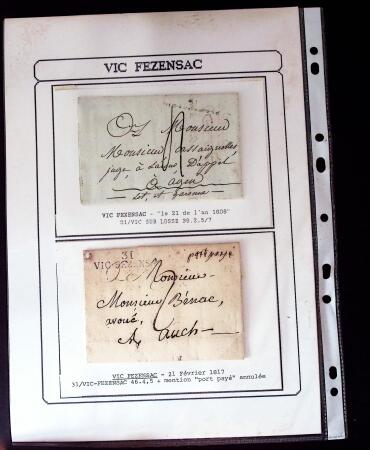 VIC FEZENSAC
Monsieur
Monsieur
juge à
à agen
lot et garonne
VIC FEZENSAC - "le 21 de l'an 1808"
31/VIC SUR LOSSE 39.2,5/7
31
VIC-FEZENSAC
port payé
Monsieur
Monsieur Bénac,
avoué,
A auch
VIC FEZENSAC - 21 Février 1817
31/VIC-FEZENSAC 46.4,5 + mention "port payé" annulée